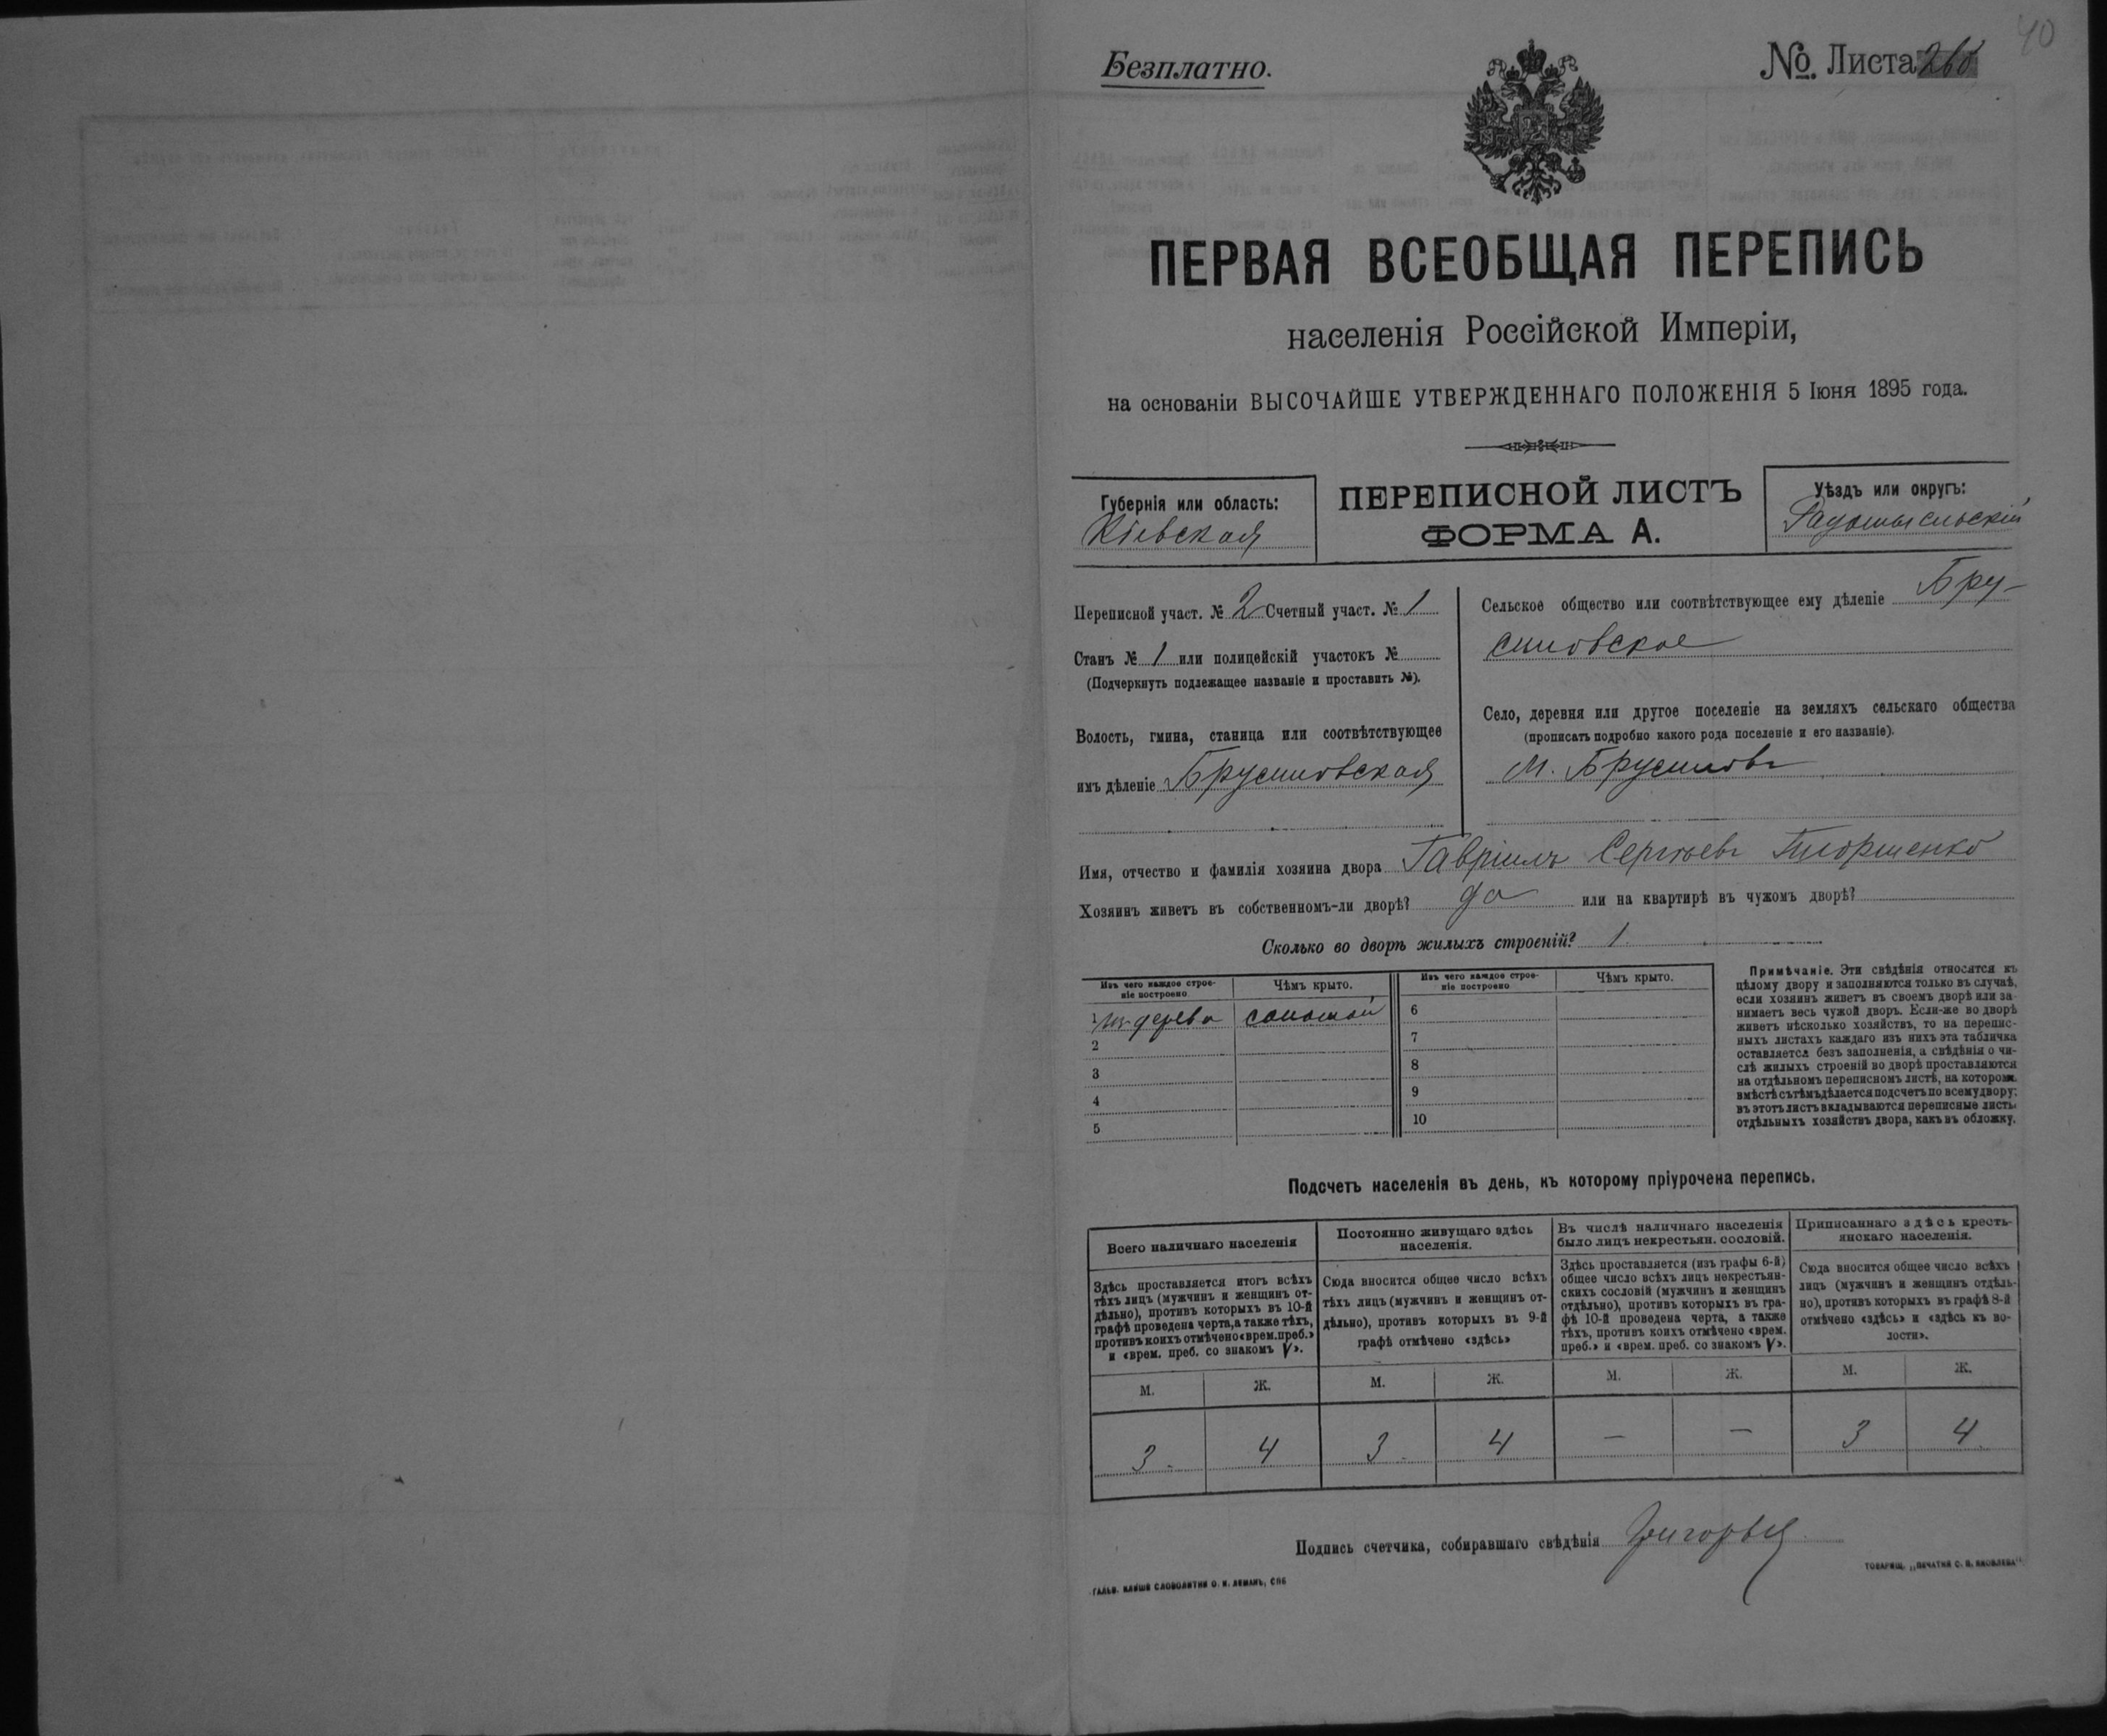 40
Безплатно.
№ Листа 260
ПЕРВАЯ ВСЕОБЩАЯ ПЕРЕПИСЬ
населенія Россійской Имперіи,
на основаніи ВЫСОЧАЙШЕ УТВЕРЖДЕННАГО ПОЛОЖЕНІЯ 5 Іюня 1895 года.
Губернія или область:
Кіевская
ПЕРЕПИСНОЙ ЛИСТЪ
ФОРМА А.
Уѣздъ или округъ:
Радомысльскій
Переписной участ. № 2 Счетный участ. № 1
Станъ № 1 или полицейскій участокъ №
(Подчеркнуть подлежащее названіе и проставить №).
Волость, гмина, станица или соотвѣтствующее
имъ дѣленіе Брусиловская
Сельское общество или соотвѣтствующее ему дѣленіе Бру-
силовское
Село, деревня или другое поселеніе на земляхъ сельскаго общества
(прописать подробно какого рода поселеніе и его названіе).
М. Брусиловъ
Имя, отчество и фамилія хозяина двора Гавріилъ Сергѣевъ
Хозяинъ живетъ въ собственномъ-ли дворѣ? да или на квартирѣ въ чужомъ дворѣ?
Сколько во дворѣ жилыхъ строеній? 1
Изъ чего каждое строе-
ніе построено
Чѣмъ крыто.
Изъ чего каждое строе-
ніе построено
Чѣмъ крыто.
1 изъ дерева соломой 6
2 7
3 8
4 9
5 10
Примѣчаніе. Эти свѣдѣнія относятся къ
цѣлому двору и заполняются только въ случаѣ,
если хозяинъ живетъ въ своемъ дворѣ или за-
нимаетъ весь чужой дворъ. Если-же во дворѣ
живетъ нѣсколько хозяйствъ, то на перепис-
ныхъ листахъ каждаго изъ нихъ эта табличка
оставляется безъ заполненія, а свѣдѣнія о чи-
слѣ жилыхъ строеній во дворѣ проставляются
на отдѣльномъ переписномъ листѣ, на которомъ
вмѣстѣ съ тѣмъ дѣлается подсчетъ по всему двору;
въ этотъ листъ вкладываются переписные листы
отдѣльныхъ хозяйствъ двора, какъ въ обложку.
Подсчетъ населенія въ день, къ которому пріурочена перепись.
Всего наличнаго населенія
Здѣсь проставляется итогъ всѣхъ
тѣхъ лицъ (мужчинъ и женщинъ от-
дѣльно), противъ которыхъ въ 10-й
графѣ проведена черта, а также тѣхъ,
противъ коихъ отмѣчено «врем. преб.»
и «врем. преб. со знакомъ V».
Постоянно живущаго здѣсь
населенія.
Сюда вносится общее число всѣхъ
тѣхъ лицъ (мужчинъ и женщинъ от-
дѣльно), противъ которыхъ въ 9-й
графѣ отмѣчено «здѣсь»
Въ числѣ наличнаго населенія
было лицъ некрестьян. сословій.
Здѣсь проставляется (изъ графы 6-й)
общее число всѣхъ лицъ некрестьян-
скихъ сословій (мужчинъ и женщинъ
отдѣльно), противъ которыхъ въ гра-
фѣ 10-й проведена черта, а также
тѣхъ, противъ коихъ отмѣчено «врем.
преб.» и «врем. преб. со знакомъ V».
Приписаннаго здѣсь кресть-
янскаго населенія.
Сюда вносится общее число всѣхъ
лицъ (мужчинъ и женщинъ отдѣль-
но), противъ которыхъ въ графѣ 8-й
отмѣчено «здѣсь» и «здѣсь къ во-
лости».
М. Ж. М. Ж. М. Ж. М. Ж.
3 4 3 4 — — 3 4
Подпись счетчика, собиравшаго свѣдѣнія
ГАЛЬВ. КЛИШЕ СЛОВОЛИТНИ О. И. ЛЕМАНЪ, СПБ
ТОВАРИЩ. „ПЕЧАТНЯ С. П. ЯКОВЛЕВА".